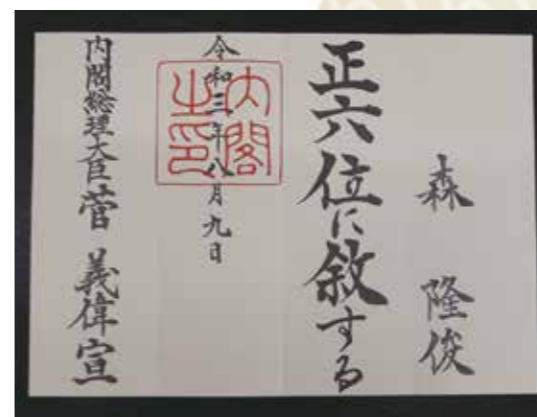 森 隆俊
正六位に叙する
令和三年八月九日
内閣之印
内閣総理大臣 菅 義偉宣